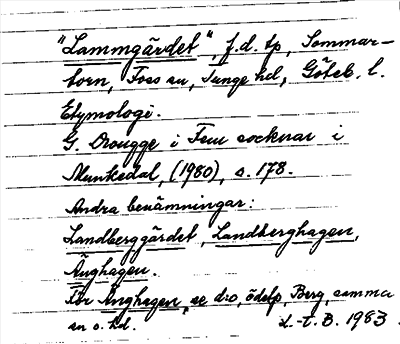 "Lammgärdet", f.d. tp, Sommar-
torn, Foss sn, Tunge hd, Göteb. l.
Etymologi.
G. Drougge i Fem socknar i
Munkedal, (1980), s. 178.
Andra benämningar:
Landberggärdet, Landberghagen,
Änghagen.
För Änghagen, se dro, ödelp, Berg, samma
sn o. hd. L-t. B. 1983.